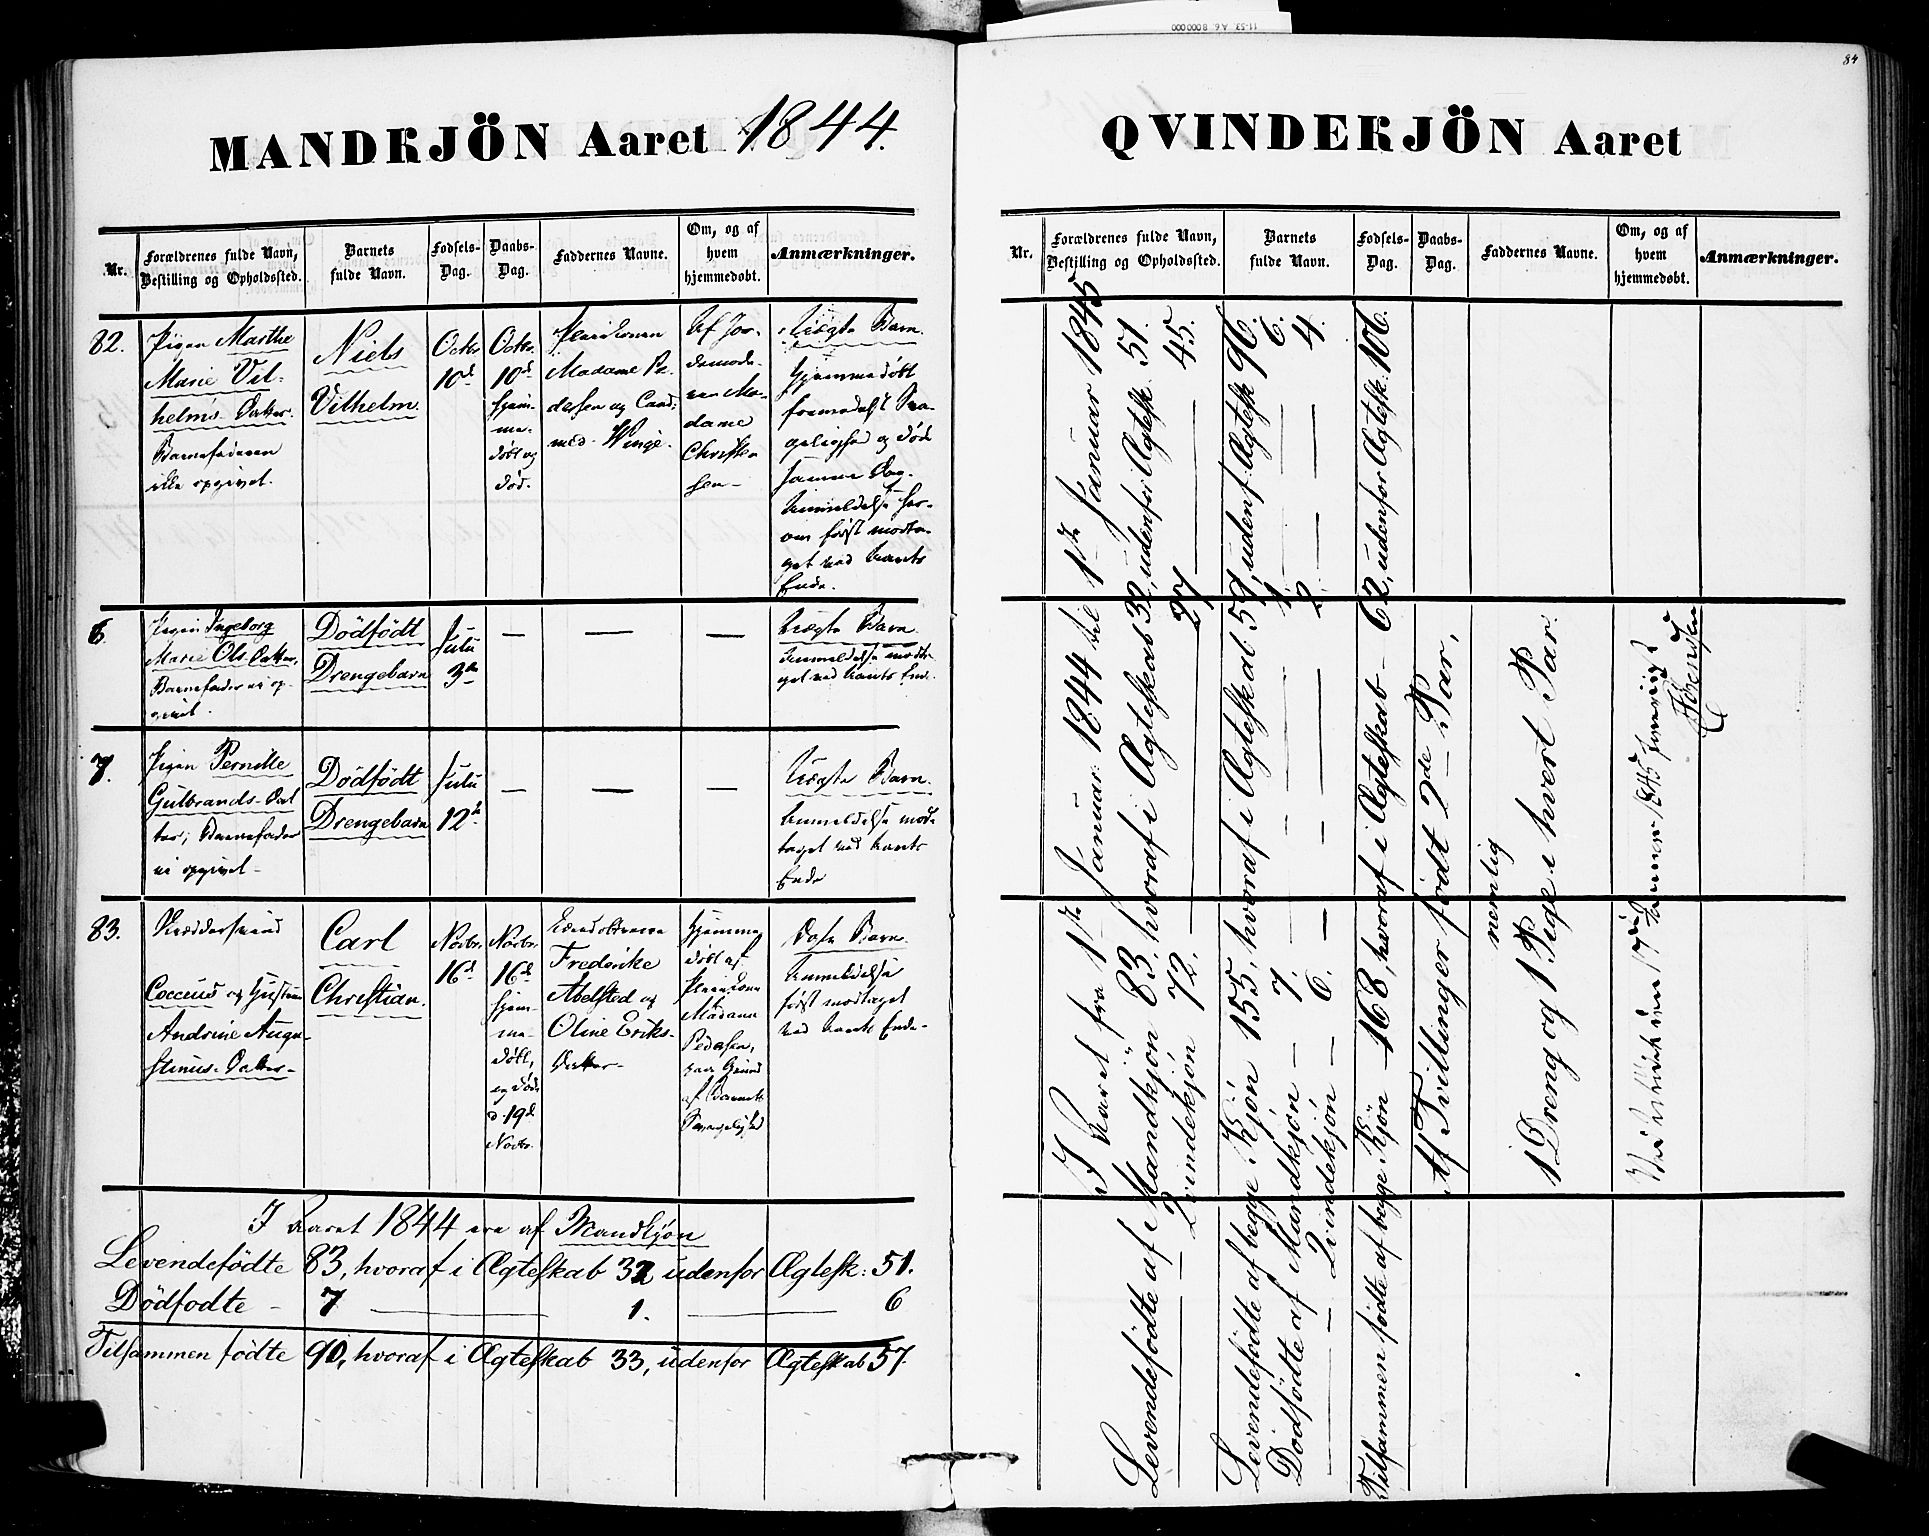 11-53. A6. 8000000
84
MANDKJÖN Aaret 1844.
Nr.
Forældrenes fulde Navn,
Bestilling og Opholdssted.
Barnets
fulde Navn.
Fødsels-
Dag.
Daabs-
Dag.
Faddernes Navne.
Om, og af
hvem
hjemmedøbt.
Anmærkninger.
82.
Pigen Marthe
Marie Vil-
helms-Datter.
Barnefaderen
ikke opgivet.
Niels
Vilhelm.
Octbr.
10d
Octbr.
10d
hjem-
me-
døbt og
død.
Madame Pe-
dersen og Cand:
med. Winge.
Af Jor-
demode-
ren Ma-
dame
Christen
sen
Uægte Barn.
hjemmedøbt
formedelst Sva-
gelighed og døde
samme Dag.
Anmeldelse her-
om først modta-
get ved Aarets
Ende.
6.
Pigen Ingeborg
Marie Ols-Datter,
Barnefader ei op-
givet.
Dödfödt
Drengebarn
Juli
3die
Uægte Barn
Anmeldelse modta-
get ved Aarets Ende.
7.
Pigen Pernille
Gulbrands-Dat
ter; Barnefader
ei opgivet
Dödfödt
Drengebarn
Juli
12te
Uægte Barn.
Anmeldelse mod-
taget ved Aarets
Ende
83.
Skræddersvend
Coccius og Hustru
Andrine Augu-
stinus-Datter
Carl
Christian.
Novbr.
16d
Novbr.
16d
hjem-
me-
døbt,
og døde
d. 19d
Novbr.
Frederike
Abelsted og
Oline Eriks-
Datter
Hjemme
døbt af
Madame
Pedersen,
paa Grund
af Barnets
Svagelighed
Barn.
Anmeldelse
først modtaget
ved Aarets Ende.
I Aaret 1844 ere af Mandkjøn
Levendefödte 83, hvoraf i Ægteskab 32 udenfor Ægtesk: 51.
Dödfodte - 7 1. 6
Tilsammen födte 90, hvoraf i Ægteskab 33, udenfor Ægteskab 57.
QVINDEKJÖN Aaret
Nr.
Forældrenes fulde Navn,
Bestilling og Opholdssted.
Barnets
fulde Navn.
Fødsels-
Dag.
Daabs-
Dag.
Faddernes Navne.
Om, og af
hvem
hjemmedøbt.
Anmærkninger.
I Aaret fra 1ste Januar 1844 til 1ste Januar 1845
Levendefödte af Mandkjön 83. hvoraf i Ægteskab 32, udenfor Ægtesk. 51.
— Qvindekjön 72. — 27 — 45.
Levendefödte af begge Kjön 155, hvoraf i Ægteskab 59, udenf: Ægtesk 96.
Dödfödte af Mandkjön — 7. — 1. — 6.
— Qvindekjön — 6. — 2. — 4.
Tilsammen födte af begge Kjön 168, hvoraf i Ægteskab 62, udenfor Ægtesk: 106.
Af Tvillinger födt 2de Par,
nemlig
1 Dreng og 1 Pige i hvert Par.